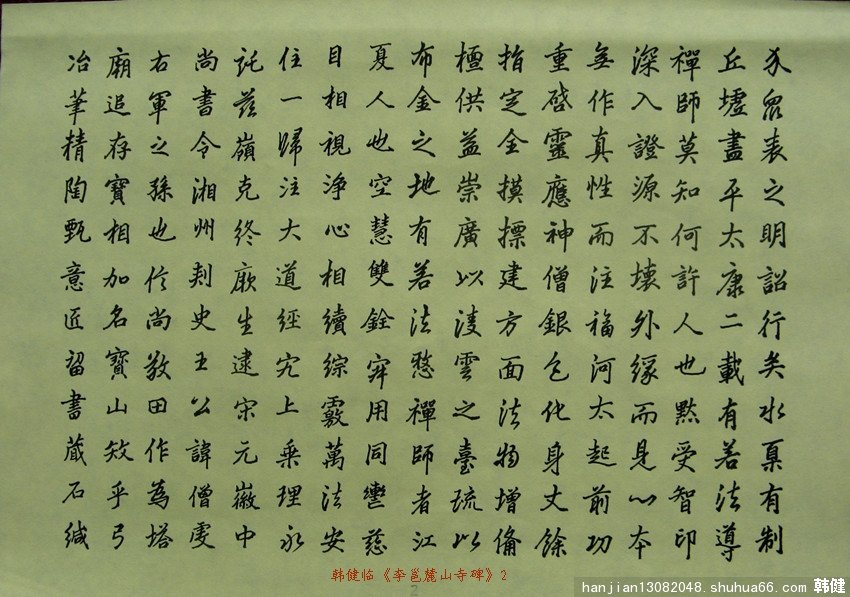 於眾表之明詔行矣水臬有制
丘墟盡平太康二載有若法導
禪師莫知何許人也默受智印
深入證源不壞外緣而是心本
無作真性而注福河太起前功
重啓靈應神僧銀色化身丈餘
指定全摸摽建方面法物增備
檀供益崇廣以凌雲之臺疏以
布金之地有若法愍禪師者江
夏人也空慧雙銓寂用同轡慈
目相視淨心相續綜覈萬法安
住一歸注大道經究上乘理永
託茲嶺克終厥生逮宋元徽中
尚書令湘州刺史王公諱僧虔
右軍之孫也信尚敦田作為塔
廟追存寶相加名寶山妓乎弓
冶筆精陶甄意匠留書藏石緘
韩健临《李邕麓山寺碑》2
2
hanjian13082048.shuhua66.com 韩健